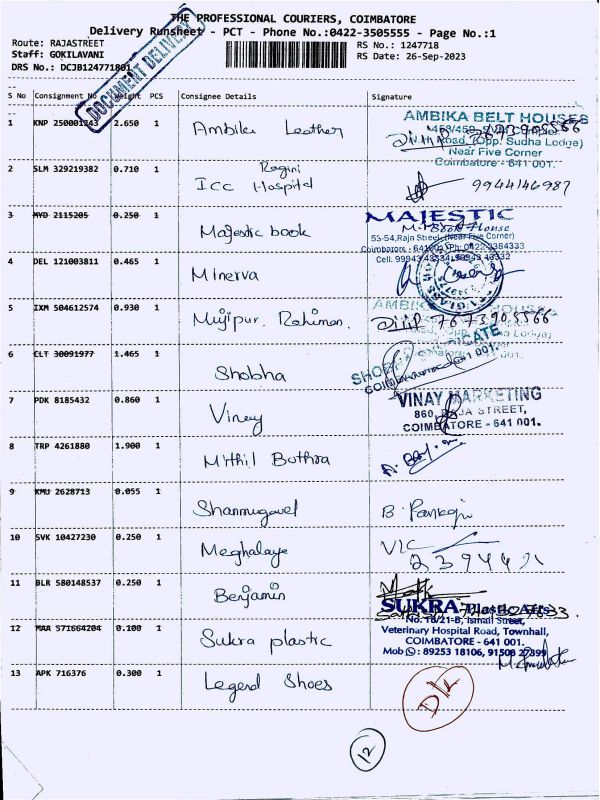 THE PROFESSIONAL COURIERS, COIMBATORE
Delivery Runsheet - PCT - Phone No.:0422-3505555 - Page No.:1
Route: RAJASTREET
RS No.: 1247718
Staff: GOKILAVANI
RS Date: 26-Sep-2023
DRS No.: DCJB124771801
DOCUMENT DELIVERY
S No Consignment No Weight PCS Consignee Details Signature
1 KNP 250001243 2.650 1 Ambika Leather
AMBIKA BELT HOUSES
(Opp. Sudha Lodge)
Near Five Corner
Coimbatore - 641 001.
2 SLM 329219382 0.710 1 Ragini
ICC Hospital
9944146987
3 MYD 2115205 0.250 1 Majestic book
MAJESTIC
Book House
53-54,Raja Street, (Near Five Corner)
4 DEL 121003811 0.465 1 Minerva
5 IXM 504612574 0.930 1 Mujipur. Rahiman.
AMBIKA HOUSES
7673905566
6 CLT 30091977 1.465 1 Shobha
7 PDK 8185432 0.860 1 Vinay
VINAY MARKETING
860, RAJA STREET,
COIMBATORE - 641 001.
8 TRP 4261880 1.900 1 Mithil Buthra
9 KMU 2628713 0.055 1 Shanmugavel
10 SVK 10427230 0.250 1 Meghalaya
11 BLR 580148537 0.250 1 Benjamin
12 MAA 571664204 0.100 1 Sukra plastic
SUKRA Plastic Arts
No. 18/21-B, Ismail Street,
Veterinary Hospital Road, Townhall,
COIMBATORE - 641 001.
Mob : 89253 18106, 91508 27399
13 APK 716376 0.300 1 Legend Shoes
12